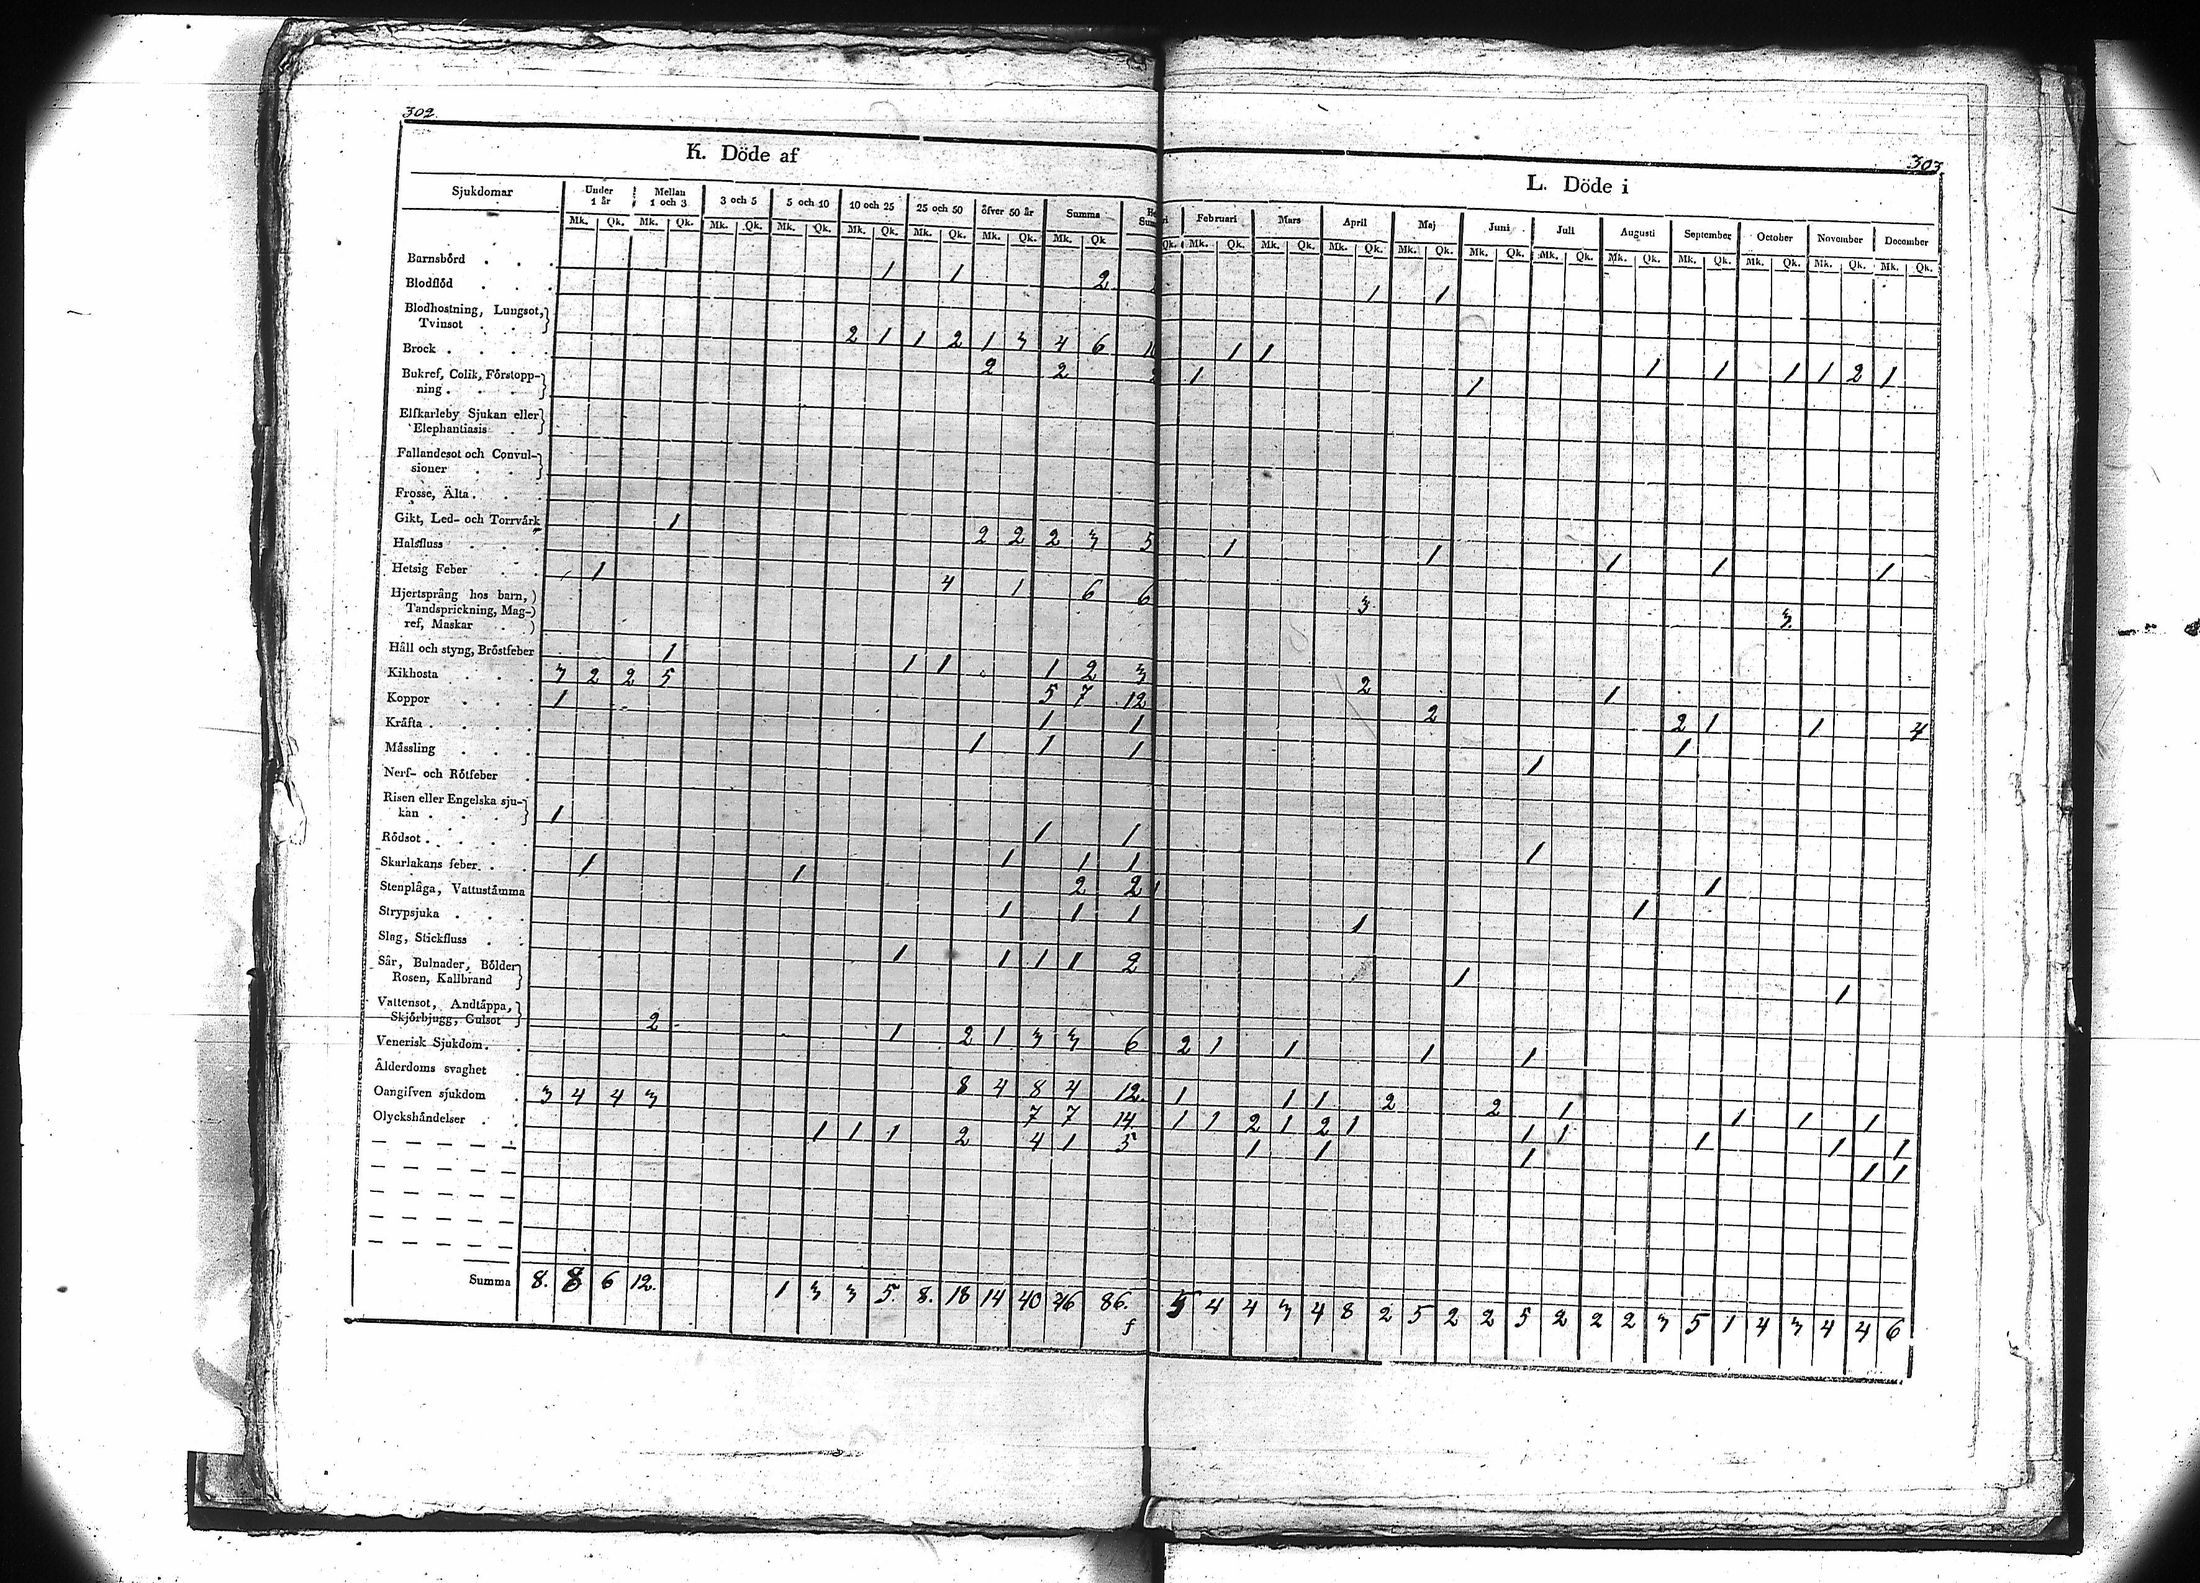 302.
K. Döde af
Sjukdomar
Under 1 år
Mellan 1 och 3
3 och 5
5 och 10
10 och 25
25 och 50
öfver 50 år
Summa
Mk. Qk. Mk. Qk. Mk. Qk. Mk. Qk. Mk. Qk. Mk. Qk. Mk. Qk. Mk. Qk
Barnsbörd . . . 1 1 2
Blodflöd . . .
Blodhostning, Lungsot,
Tvinsot . . . 2 1 1 2 1 3 4 6
Brock . . . . 2 2
Bukref, Colik, Förstopp-
ning . . . .
Elfkarleby Sjukan eller
Elephantiasis
Fallandesot och Convul-
sioner . . .
Frosse, Älta . . .
Gikt, Led- och Torrvärk 1 2 2 2 3 5
Halsfluss . . .
Hetsig Feber . . . 1 4 1 6 6
Hjertsprång hos barn,
Tandsprickning, Mag-
ref, Maskar . .
Håll och styng, Bröstfeber 1 1 1 1 2 3
Kikhosta . . . . 3 2 2 5 5 7 12
Koppor . . . 1 1 1
Kräfta . . . . 1 1 1
Mässling . . .
Nerf- och Rötfeber .
Risen eller Engelska sju-
kan . . . . 1 1 1
Rödsot . . . . 1 1 1
Skarlakans feber . . . 1 1 2 2
Stenplåga, Vattustämma 1 1 1
Strypsjuka . . .
Slag, Stickfluss . . 1 1 1 1 2
Sår, Bulnader, Bölder
Rosen, Kallbrand
Vattensot, Andtäppa,
Skjörbjugg, Gulsot 2 1 2 1 3 3 6
Venerisk Sjukdom . .
Ålderdoms svaghet . 8 4 8 4 12
Oangifven sjukdom . 3 4 4 3 7 7 14
Olyckshändelser . . 1 1 1 2 4 1 5
Summa 8. 8 6 12. 1 3 3 5. 8. 18 14 40 46 86.
303
L. Döde i
Februari
Mars
April
Maj
Juni
Juli
Augusti
September
October
November
December
Qk. Mk. Qk. Mk. Qk. Mk. Qk. Mk. Qk. Mk. Qk. Mk. Qk. Mk. Qk. Mk. Qk. Mk. Qk. Mk. Qk. Mk. Qk.
1 1
1 1 1 1 1 1 2 1
1 1
1 1 1 1 1
3 3.
2 1
2 2 1 1 4
1
1
1
1
1 1
1
1 1
2 1 1 1 1
1 1 1 2 2 1 1 1 1
1 1 2 1 2 1 1 1 1 1 1
1 1 1 1 1
5 4 4 3 4 8 2 5 2 2 5 2 2 2 3 5 1 4 3 4 4 6